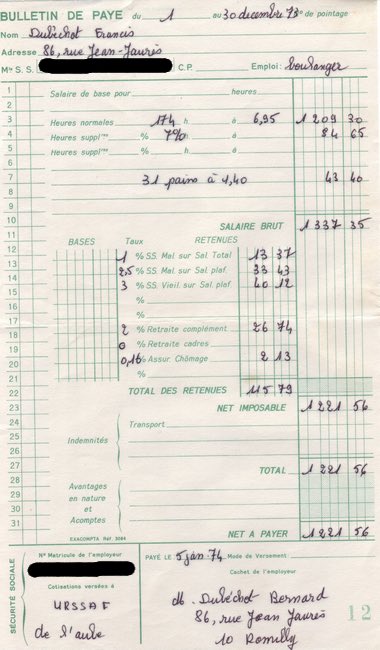 BULLETIN DE PAYE du 1 au 30 decembre 73 de pointage
Nom Dubéchot Francis
Adresse 86, rue Jean-Jaurès
Mle S. S. C.P. Emploi : boulanger
1 Salaire de base pour heures
2
3 Heures normales 174 h à 6,95 1 209 30
4 Heures supplres % 7% à 84 65
5 Heures supplres % h à
6
7 31 pains à 1,40 43 40
8
9
10 SALAIRE BRUT 1 337 35
11 BASES Taux RETENUES
12 1 % SS. Mal. sur Sal. Total 13 37
13 2,5 % SS. Mal. sur Sal. plaf. 33 43
14 3 % SS. Vieil. sur Sal. plaf. 40 12
15 %
16 %
17
18 2 % Retraite complément 26 74
19 0 % Retraite cadres
20 0,16 % Assur. Chômage 2 13
21 %
22 TOTAL DES RETENUES 115 79
23 NET IMPOSABLE 1 221 56
24 Transport
25 Indemnités
26
27 TOTAL 1 221 56
28 Avantages
29 en nature
30 et
31 Acomptes
EXACOMPTA Réf. 3084 NET A PAYER 1 221 56
SÉCURITÉ SOCIALE
N° Matricule de l'employeur
Cotisations versées à
URSSAF
de l'aube
PAYÉ LE 5 jan. 74 Mode de Versement :
Cachet de l'employeur
M. Dubéchot Bernard
86, rue Jean Jaurès
10 Romilly
12